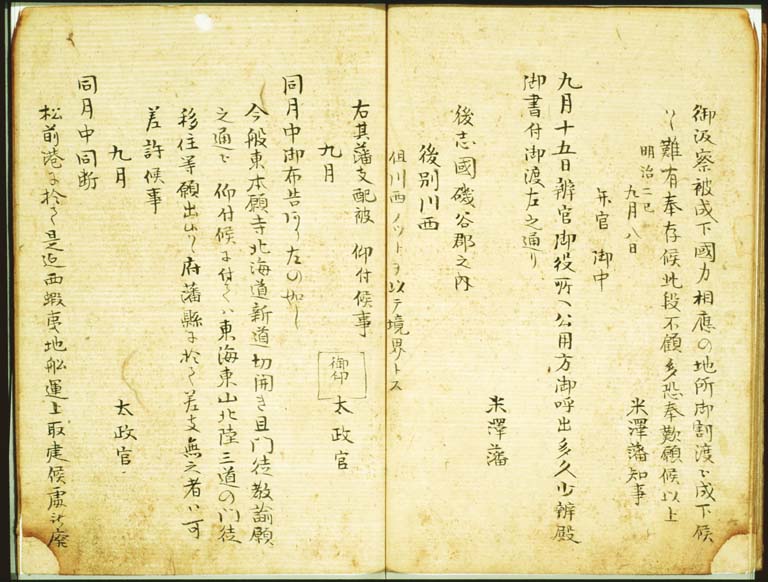 御汲察被成下國力相應の地所御割渡被成下候
ハヽ難有奉存候此段不顧多恐奉歎願候以上
明治二巳
九月八日
米澤藩知事
弁官 御中
九月十五日辨官御役所ヘ公用方御呼出多久少辨殿
御書付御渡左之通り
米澤藩
後志國磯谷郡之内
後別川西
但川西ノツトヲ以テ境界トス
右其藩支配被 仰付候事
九月
御印
太政官
同月中御布告左の如し
今般東本願寺北海道新道切開き且門徒教諭願
之通被 仰付候ニ付てハ東海東山北陸三道の門徒
移住等願出候ハヽ府藩縣ニ於て差支無之者ハ可
差許候事
九月
太政官
同月中同断
松前港ニ於て是迄西蝦夷地船運上取建候處被廃